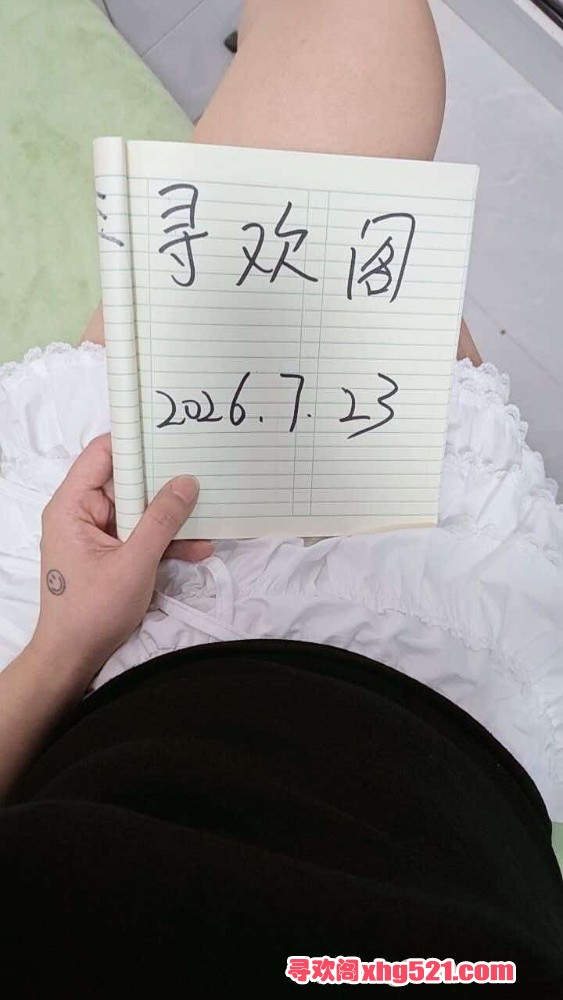 寻欢阁
2026.7.23
寻欢阁xhg521.com